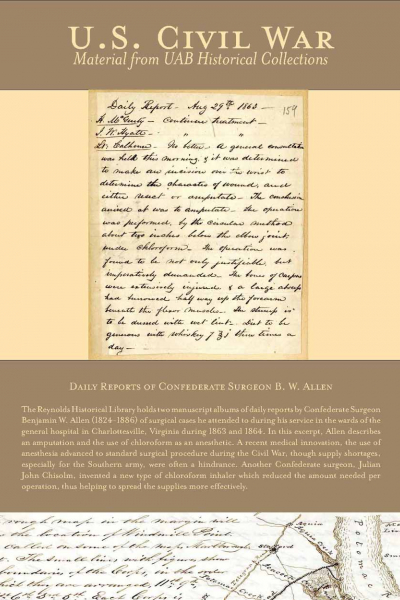 U.S. Civil War
Material from UAB Historical Collections
Daily Report - Aug 29th 1863 -
159
H. McGurty - Continue Treatment -
J. W. Hyatte - " "
Lt. Calhoun - No better - A general consultation
was held this morning, & it was determined
to make an incision on the wrist to
determine the character of wound, and
either resect or amputate - The conclusion
arrived at was to amputate - the operation
was performed, by the circular method
about two inches below the elbow joint,
under chloroform. The operation was
found to be not only justifiable but
imperatively demanded - The bones of carpus
were extensively injured & a large abscess
had burrowed half way up the forearm
beneath the flexor muscles - The stump is
to be dressed with wet lint - Diet to be
generous with whiskey three times a
day -
Daily Reports of Confederate Surgeon B. W. Allen
The Reynolds Historical Library holds two manuscript albums of daily reports by Confederate Surgeon
Benjamin W. Allen (1824–1886) of surgical cases he attended to during his service in the wards of the
general hospital in Charlottesville, Virginia during 1863 and 1864. In this excerpt, Allen describes
an amputation and the use of chloroform as an anesthetic. A recent medical innovation, the use of
anesthesia advanced to standard surgical procedure during the Civil War, though supply shortages,
especially for the Southern army, were often a hindrance. Another Confederate surgeon, Julian
John Chisolm, invented a new type of chloroform inhaler which reduced the amount needed per
operation, thus helping to spread the supplies more effectively.
rough map in the margin will
the location of Windmill Point.
called on some of the maps
The small lines with figures show
boundaries of the Corps, in the order
which they are arranged,
Each Corps is
Potomac